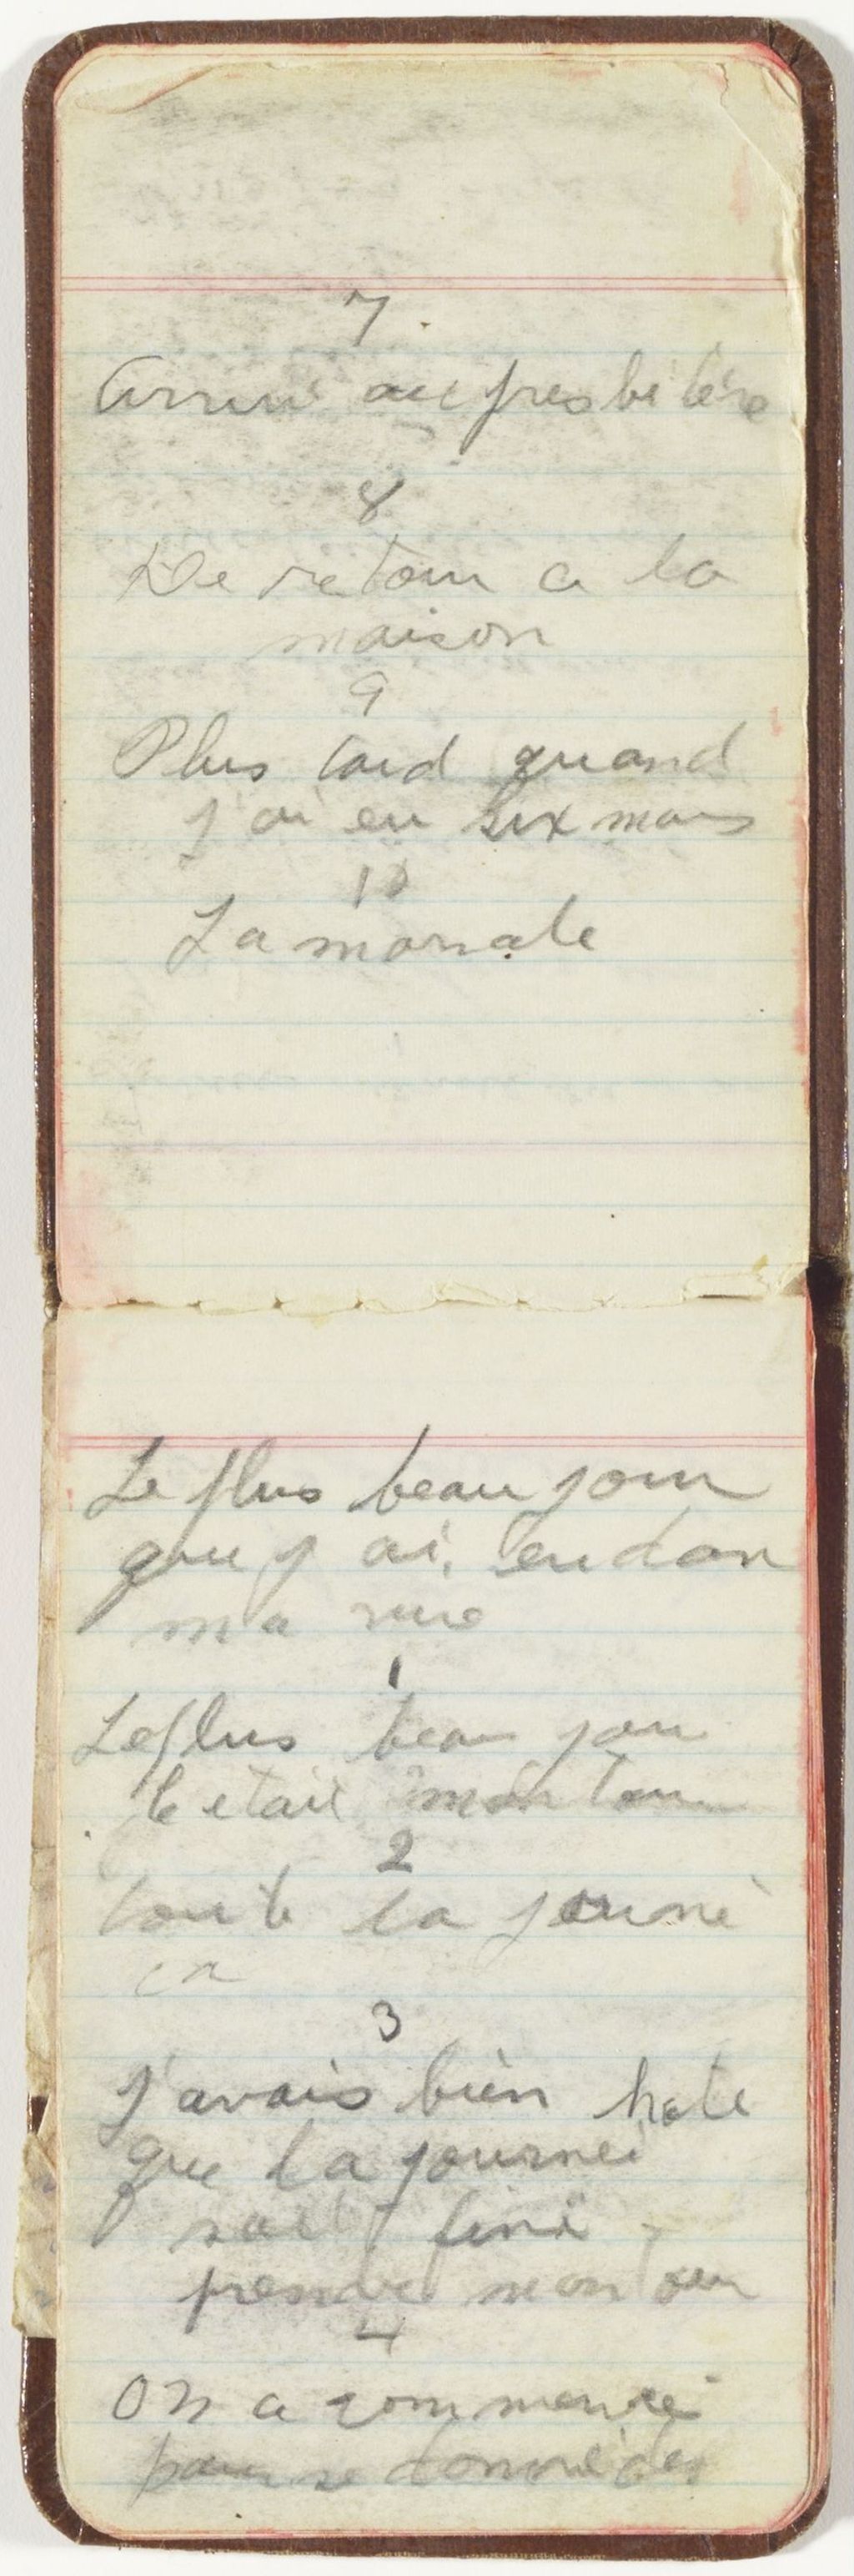 7.
Arrivé au presbitère
8
De retour a la
maison
9
Plus tard quand
j'ai eu six mois
10
La morale
Le plus beau jour
que j ai eu dan
ma vie
1
Le plus beau jour
c etait mon tour
2
toute la journé
3
J'avais bien hate
que la journeé
soit fini
prendre mon
4
On a commencé
pour se donné des